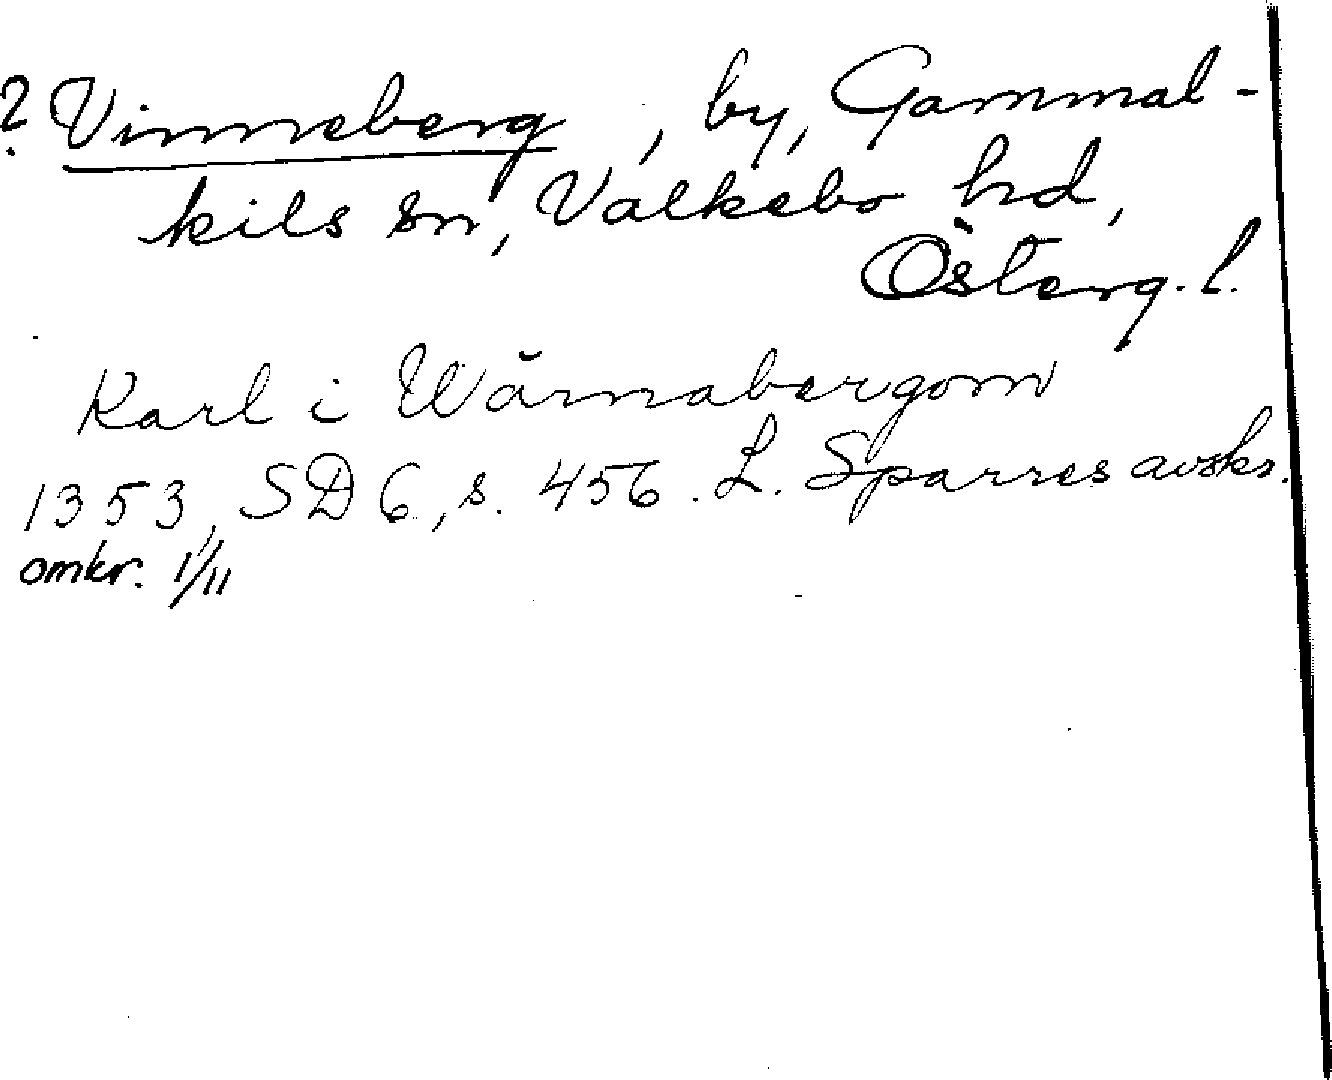 ? Vinneberg, by, Gammal-
kils sn, Valkebo hd,
Österg. l.
Karl i Wärnabergom
1353, SD 6, s. 456. L. Sparres avskr.
omkr. 1/11